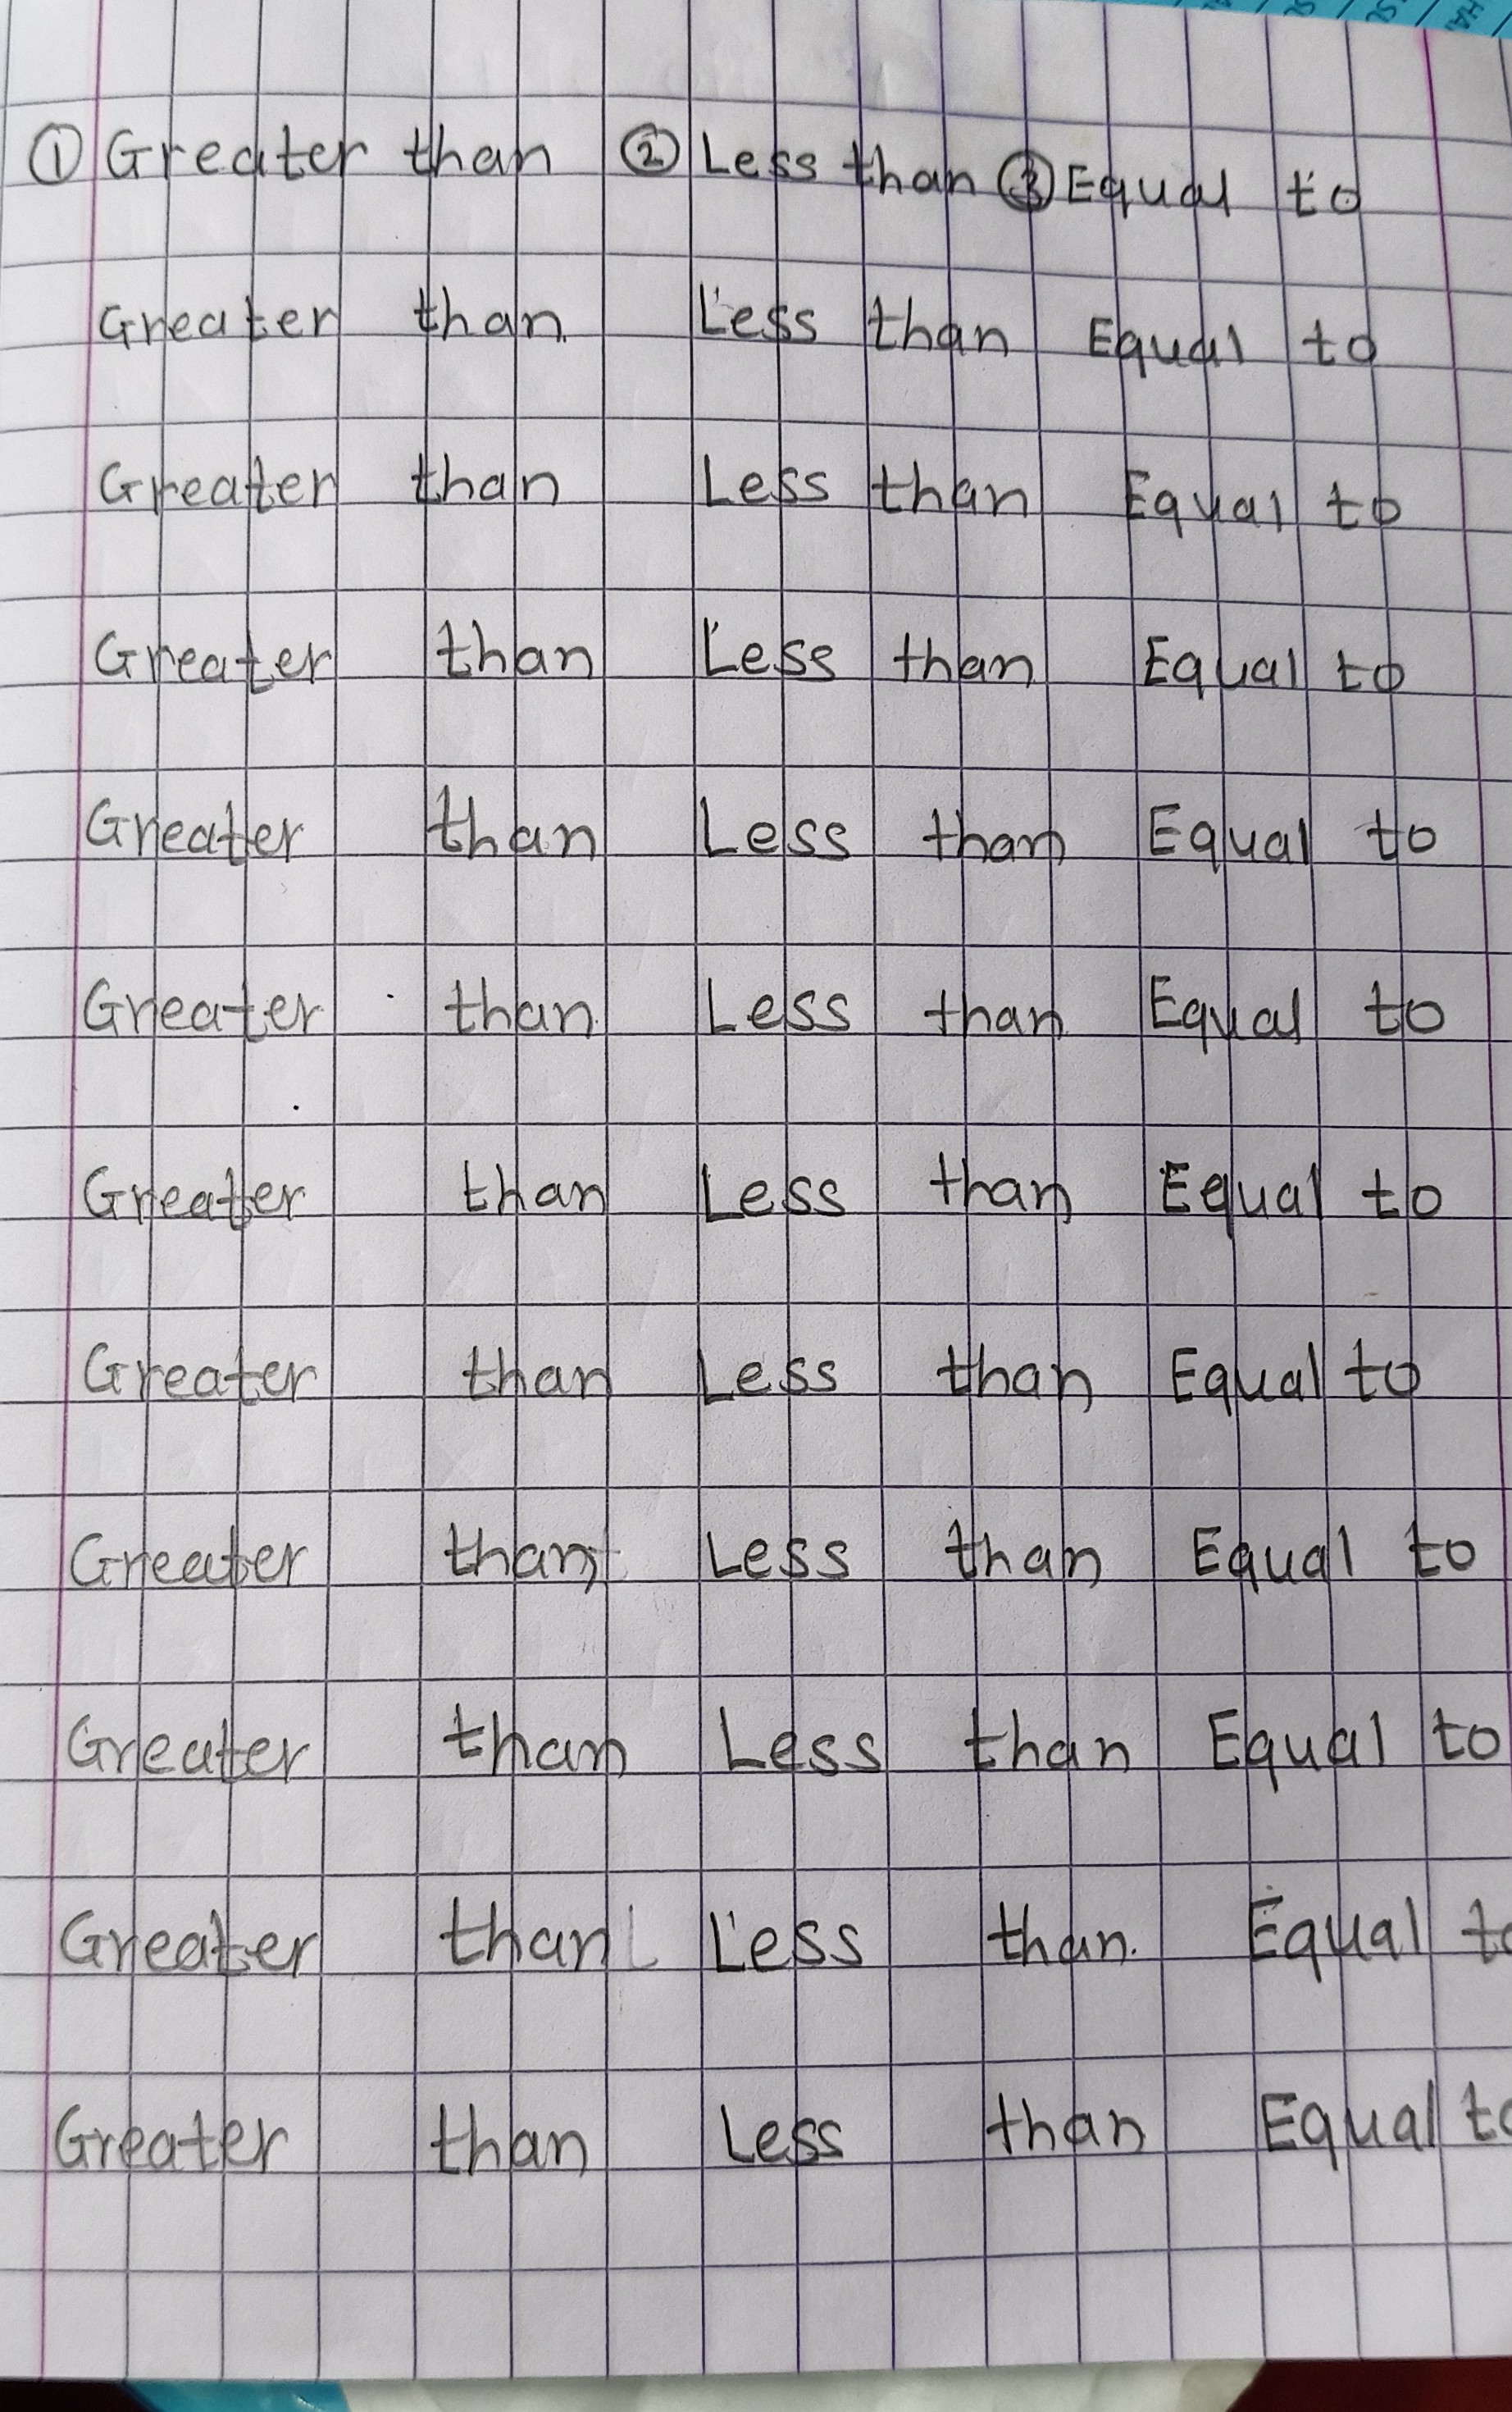 ① Greater than ② Less than ③ Equal to
Greater than Less than Equal to
Greater than Less than Equal to
Greater than Less than Equal to
Greater than Less than Equal to
Greater than Less than Equal to
Greater than Less than Equal to
Greater than Less than Equal to
Greater than Less than Equal to
Greater than Less than Equal to
Greater than Less than Equal to
Greater than Less than Equal to